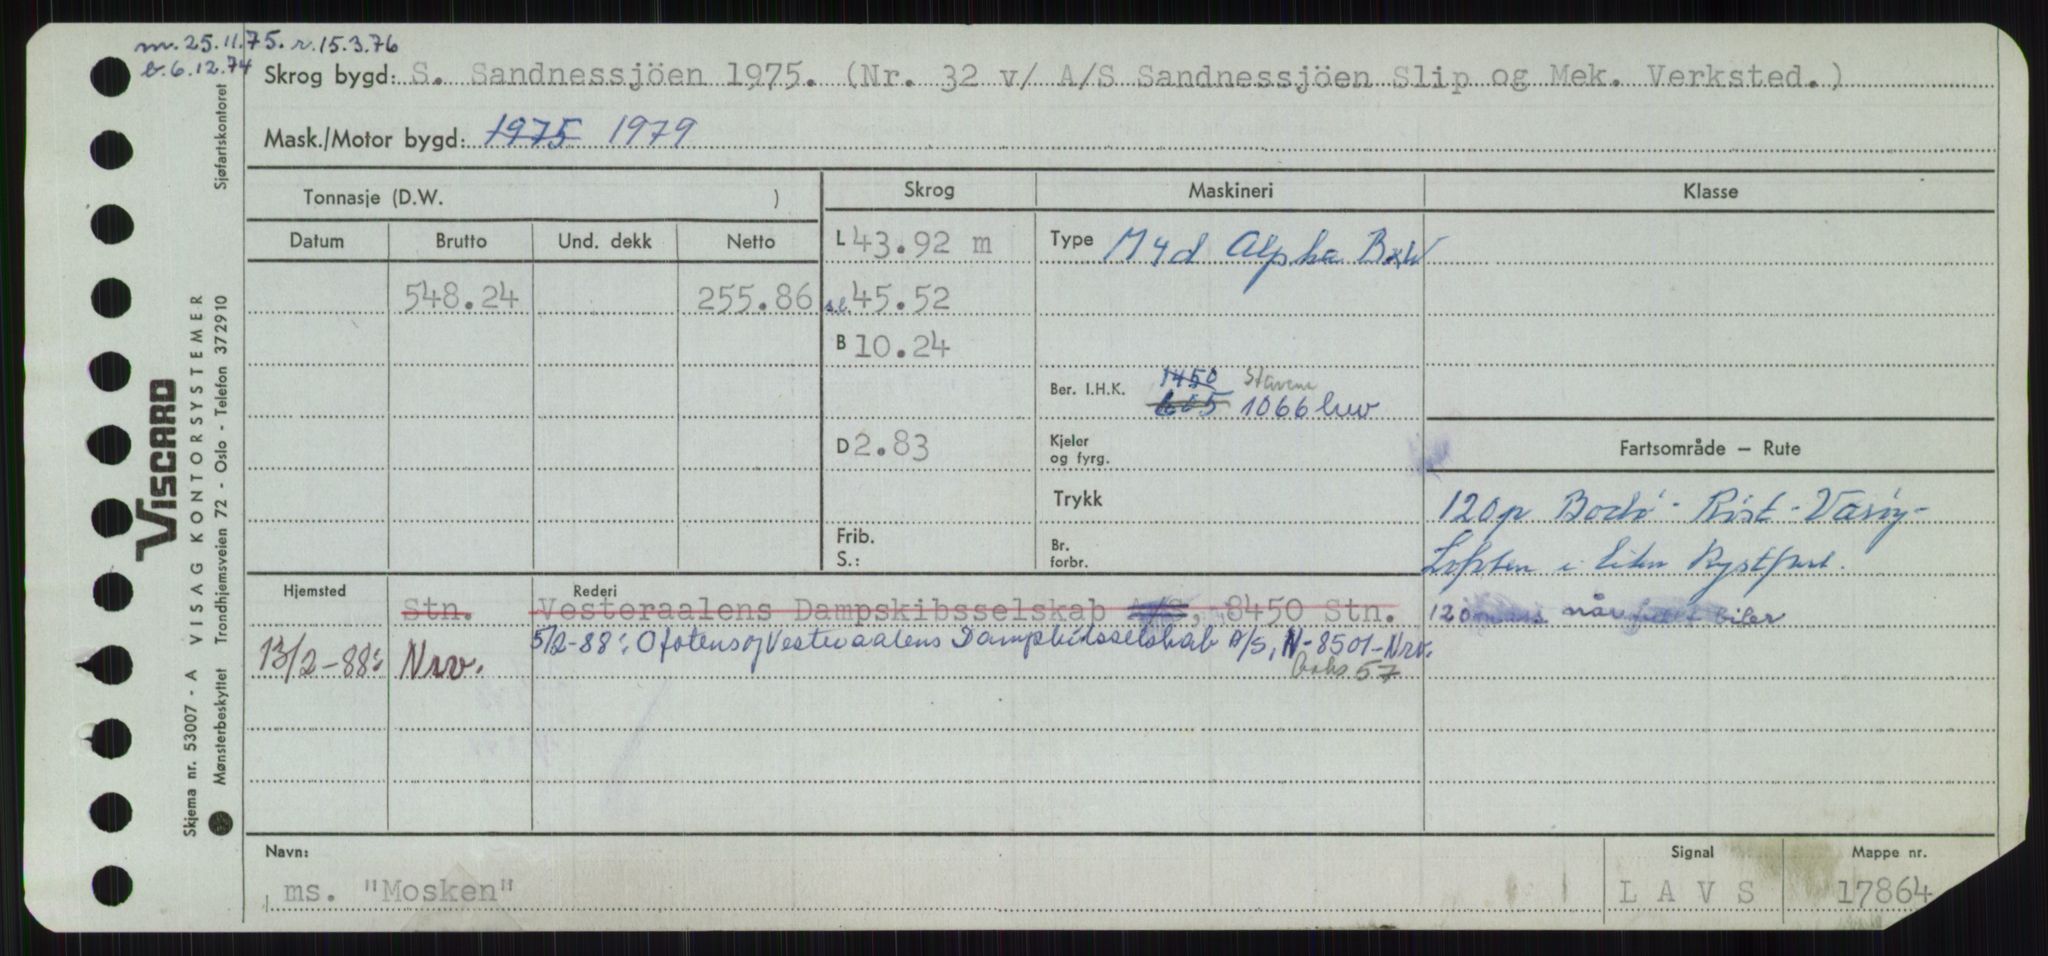 m. 25.11.75. r. 15.3.76
b. 6.12.74
Skrog bygd: S. Sandnessjöen 1975. (Nr. 32 v/ A/S Sandnessjöen Slip og Mek. Verksted.)
Mask./Motor bygd: 1975 1979
Tonnasje (D.W. )
Skrog
Maskineri
Klasse
Datum Brutto Und. dekk Netto
L 43.92 m
Type M4d Alpha BxW
548.24 255.86
s.l. 45.52
B 10.24
Ber. I.H.K. 1450
605 1066 hw
D 2.83
Kjeler
og fyrg.
Trykk
Frib.
S.:
Br.
forbr.
Fartsområde – Rute
120p Bodö - Röst - Väröy -
Lofoten i liten kystfart.
120 når biler
Hjemsted Rederi
Stn. Vesteraalens Dampskibsselskab A/S, 8450 Stn.
13/2-88: Nrv. 5/2-88: Ofotens og Vesteraalens Dampskibsselskab A/S, N-8501-Nrv.
Boks 57
Navn:
ms. "Mosken"
Signal
L A V S
Mappe nr.
17864
Sjøfartskontoret
VISCARD
Skjema nr. 53007 - A VISAG KONTORSYSTEMER
Mønsterbeskyttet Trondhjemsveien 72 - Oslo - Telefon 372910